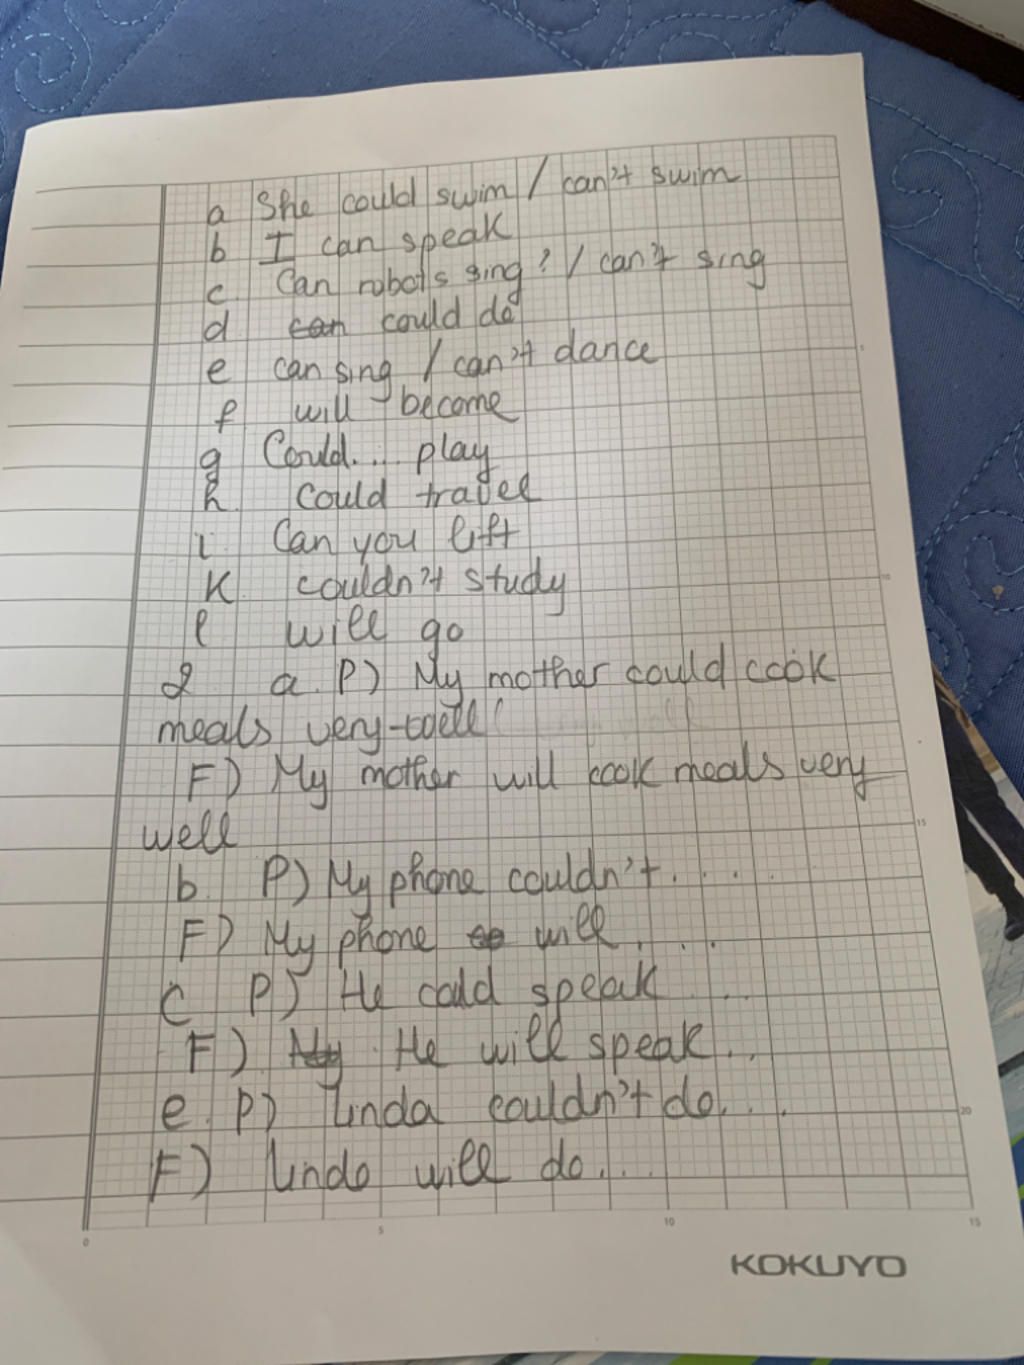 a She could swim / can't swim
b I can speak
c. Can robots sing? / can't sing
d. can could do
e can sing / can't dance
f will become
g Could.... play
h. could travel
i Can you lift
k couldn't study
l will go
2 a. P) My mother could cook
meals very well
F) My mother will cook meals very
well
b. P) My phone couldn't.....
F) My phone will....
c P) He could speak ....
F) My He will speak...
e. P) Linda couldn't do....
F) Lindo will do....
0 5 10 15
5
10
15
20
KOKUYO